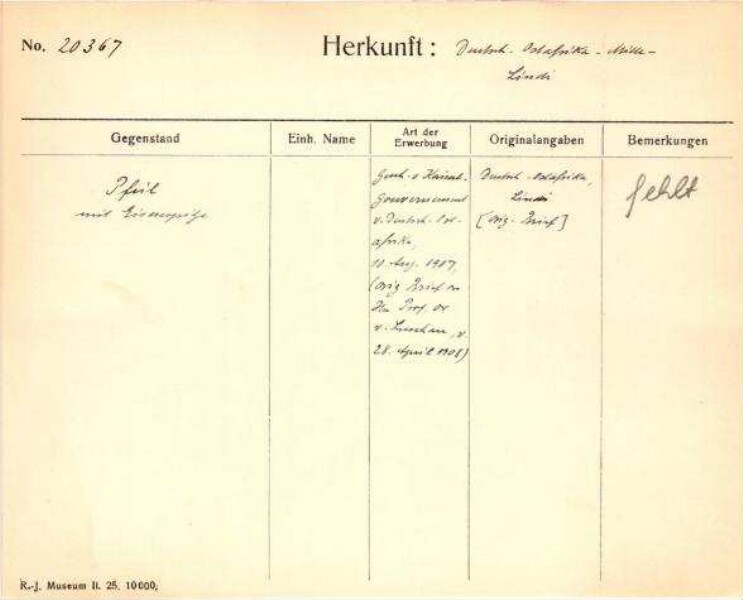 No. 20367
Herkunft: Deutsch. Ostafrika - Mitte -
Lindi
Gegenstand
Einh. Name
Art der
Erwerbung
Originalangaben
Bemerkungen
Pfeil
mit Eisenspitze
Gesch. v. Kaiserl.
Gouvernement
v. Deutsch-Ost-
afrika,
10 Aug. 1907,
(orig Brief an
Hn Prof. Dr
v. Luschan, v.
28. April 1908)
Deutsch-Ostafrika,
Lindi
[Orig. Brief]
fehlt
R.-J. Museum II. 25. 10000;